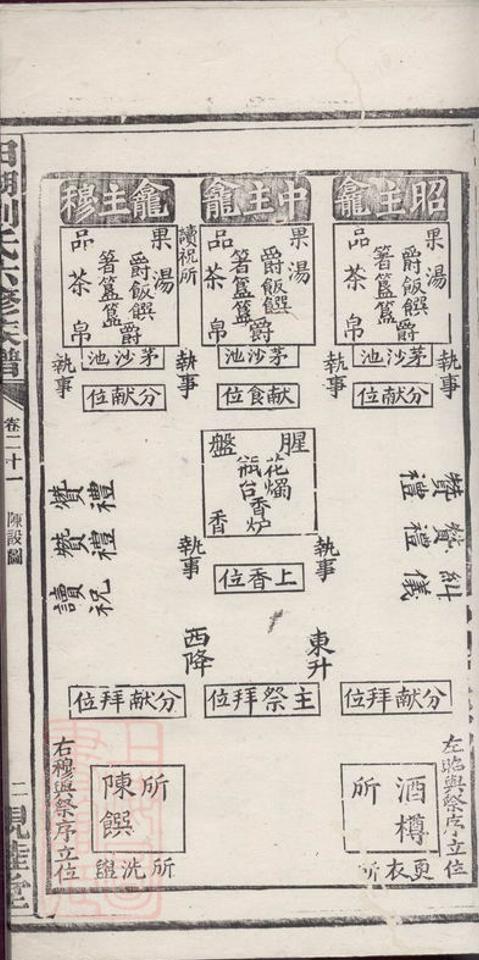 昭主龕
中主龕
穆主龕
果湯
爵飯饌爵
箸簋簋
品茶帛
果湯
爵飯饌爵
箸簋簋
品茶帛
讀祝所
果湯
爵飯饌爵
箸簋簋
品茶帛
執事
茅沙池
執事
茅沙池
執事
茅沙池
執事
分献位
献食位
分献位
腥盤
花燭
瓶台
香炉
香
執事
上香位
執事
糾儀
贊禮
贊禮
贊禮
贊禮
讀祝
東升
西降
分献拜位
主祭拜位
分献拜位
左昭與祭序立位
酒樽所
更衣所
所陳饌
所洗盥
右穆與祭序立位
氏六修族譜
卷二十一
陳設圖
二